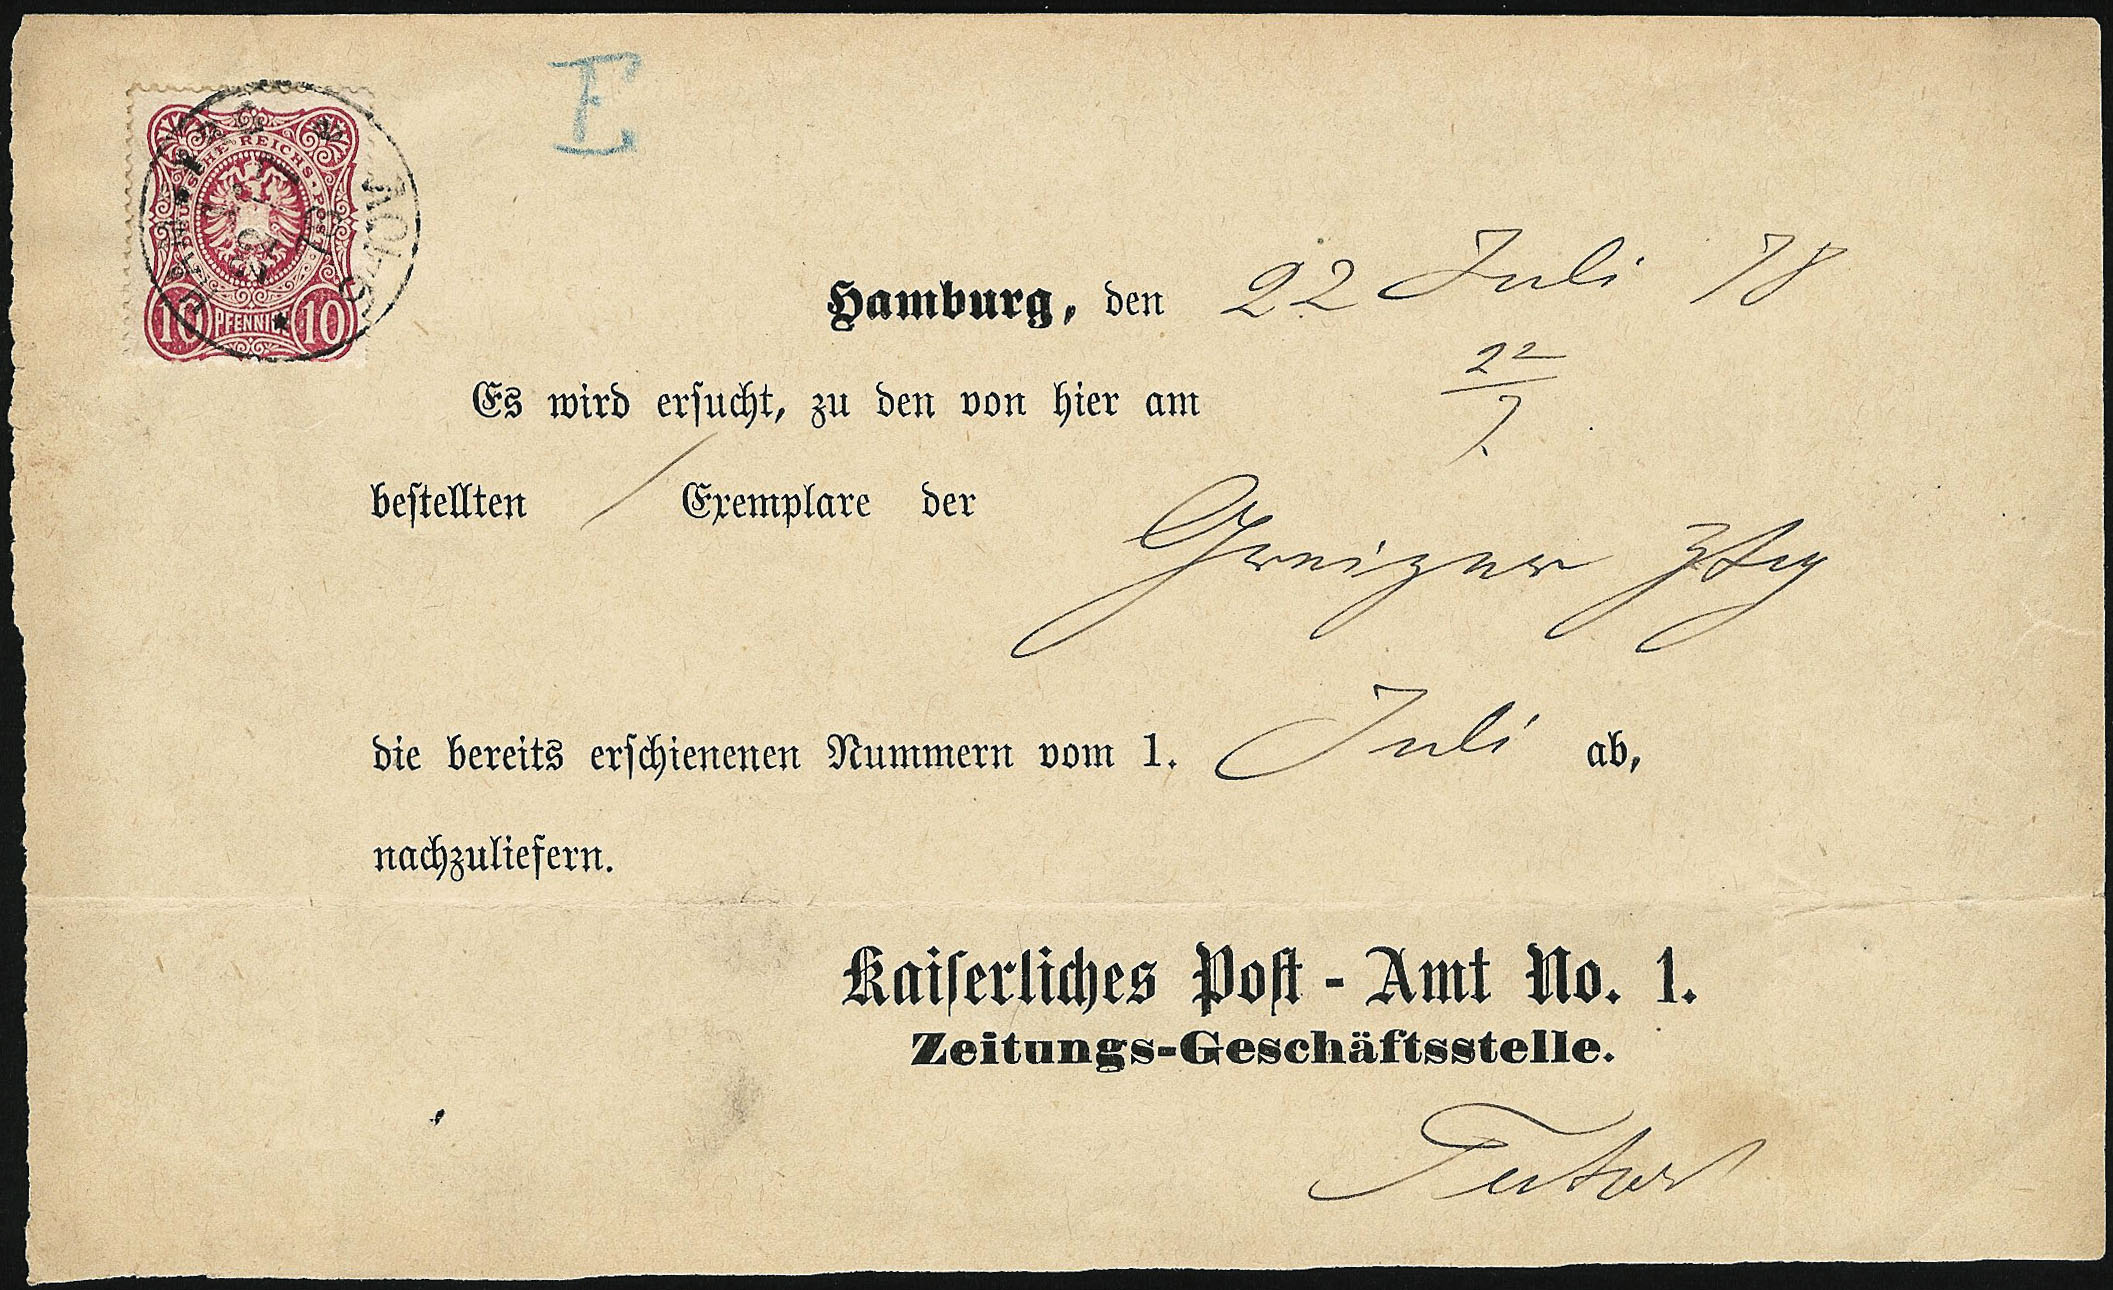 E
DEUTSCHE REICHS-POST
10 PFENNIG 10
Hamburg, den 22 Juli 78
Es wird ersucht, zu den von hier am 22/7.
bestellten 1 Exemplare der Greizer Ztg
die bereits erschienenen Nummern vom 1. Juli ab,
nachzuliefern.
Kaiserliches Post-Amt No. 1.
Zeitungs-Geschäftsstelle.